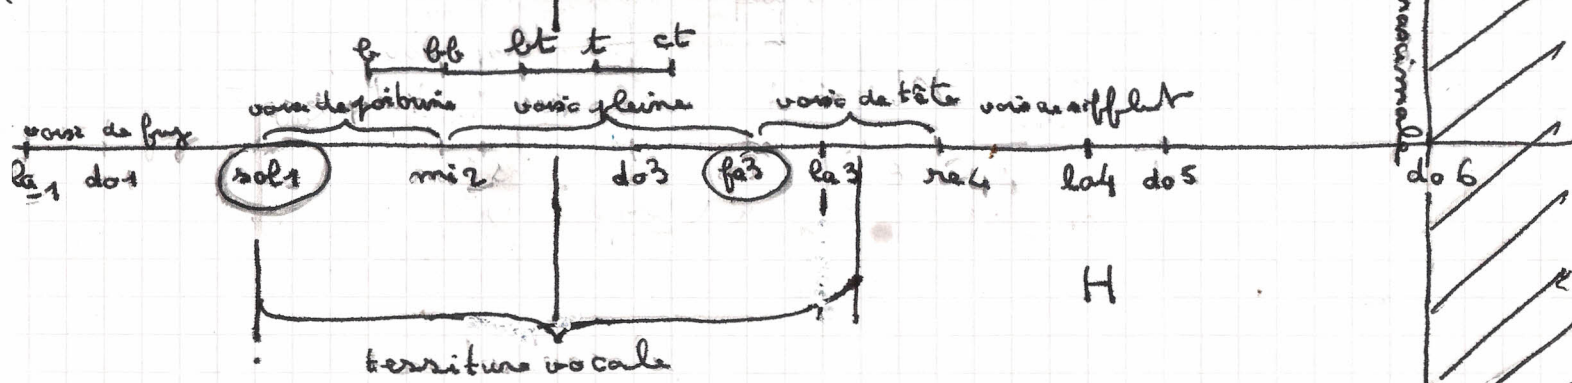 b bb bt t ct
voix de poitrine voix pleine voix de tête voix de sifflet
voix de fry
maximale
la-1 do1 sol1 mi2 do3 fa3 la3 re4 la4 do5 do6
H
tessiture vocale